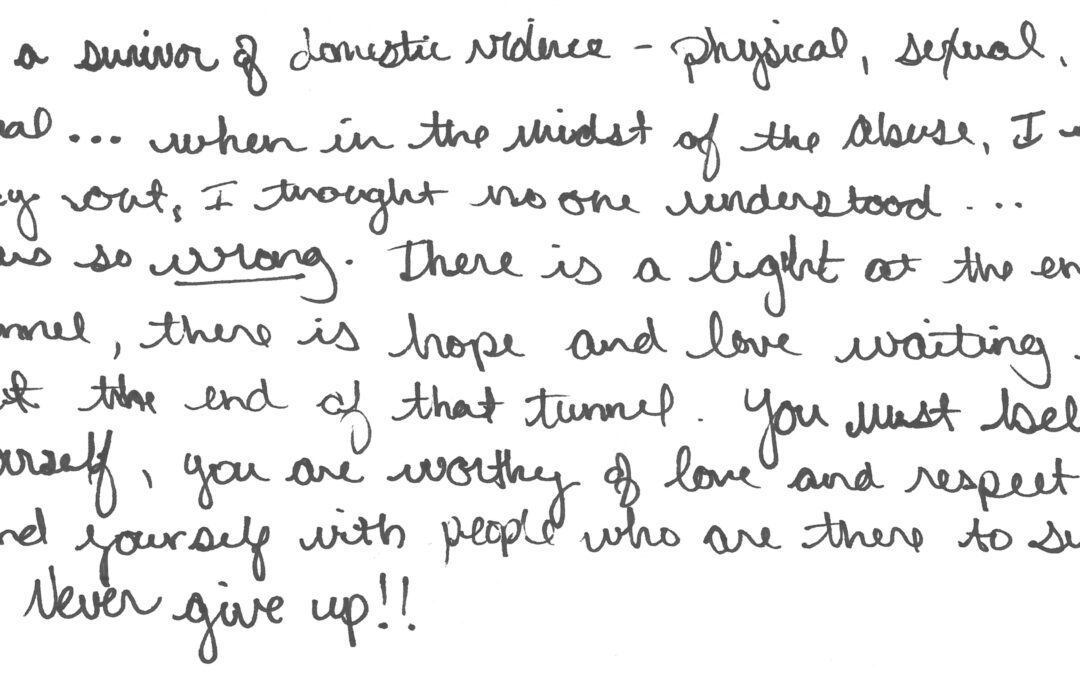 a survivor of domestic violence - physical, sexual,
al... when in the midst of the abuse, I
y out, I thought no one understood...
so wrong. There is a light at the en
nnel, there is hope and love waiting
t the end of that tunnel. You must bel
urself, you are worthy of love and respect
nd yourself with people who are there to su
Never give up!!